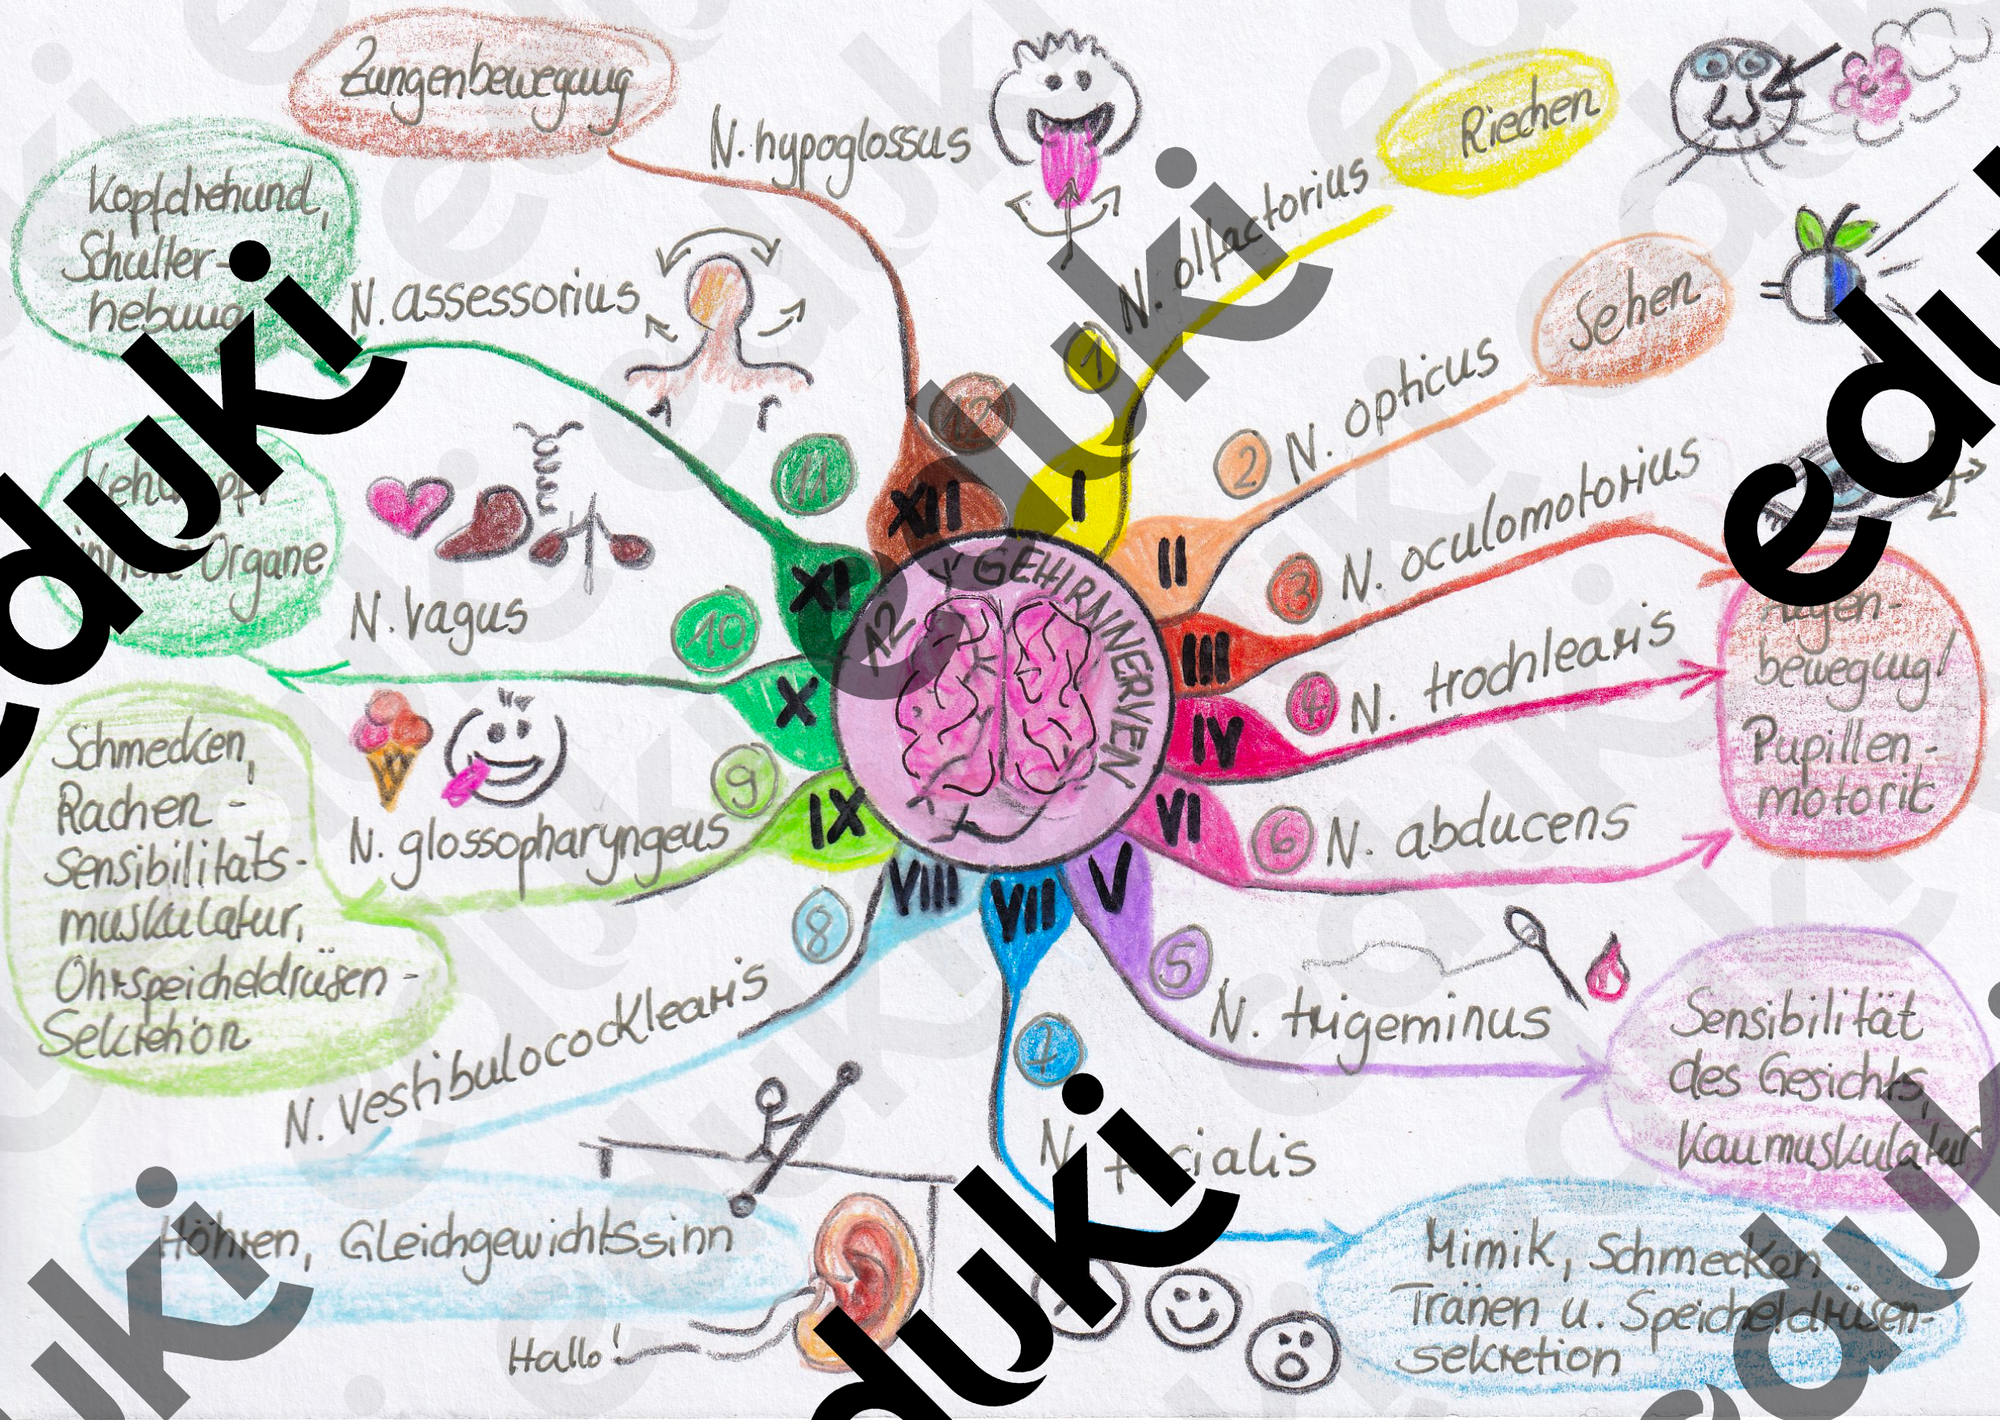 12 GEHIRNNERVEN
I
1
N. olfactorius
Riechen
II
2
N. opticus
Sehen
III
3
N. oculomotorius
IV
4
N. trochlearis
VI
6
N. abducens
Augen-
bewegung/
Pupillen-
motorik
V
5
N. trigeminus
Sensibilität
des Gesichts,
Kaumuskulatur
VII
7
N. facialis
Mimik, Schmecken
Tränen u. Speicheldrüsen-
sekretion
VIII
8
N. vestibulocochlearis
Höhren, Gleichgewichtssinn
Hallo!
IX
9
N. glossopharyngeus
Schmecken,
Rachen-
sensibilitäts-
muskulatur,
Ohrspeicheldrüsen-
Sekretion
X
10
N. vagus
Kehlkopf,
innere Organe
XI
11
N. assessorius
Kopfdrehund,
Schulter-
hebung
XII
12
N. hypoglossus
Zungenbewegung
eduki
eduki
eduki
eduki
eduki
eduki